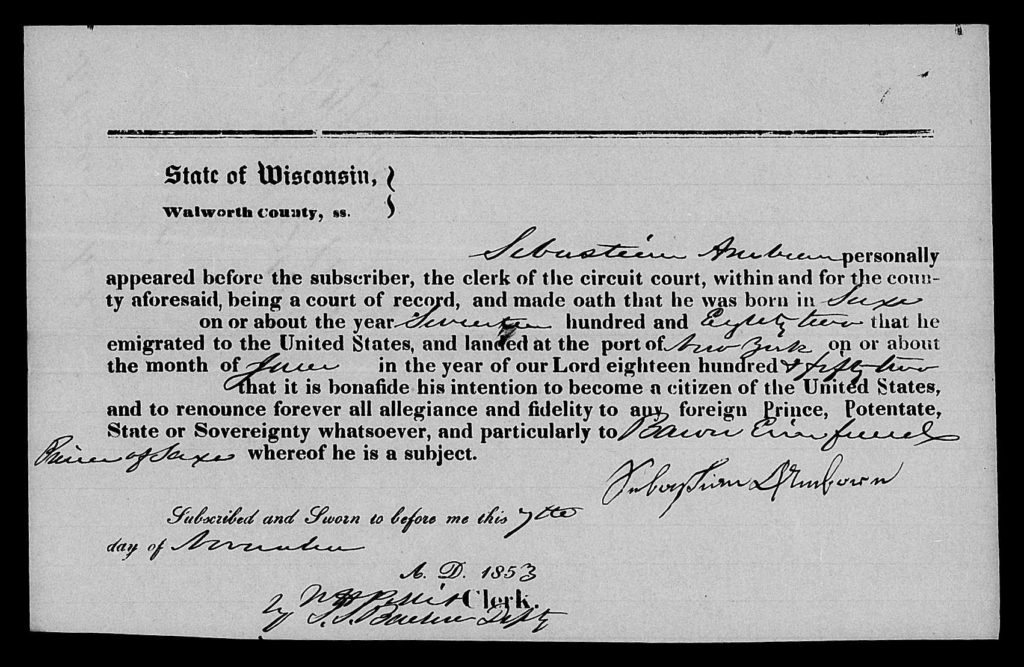 State of Wisconsin,
Walworth County, ss.
Sebastian personally
appeared before the subscriber, the clerk of the circuit court, within and for the coun-
ty aforesaid, being a court of record, and made oath that he was born in Saxe
on or about the year Seventeen hundred and Eighty two that he
emigrated to the United States, and landed at the port of New York on or about
the month of June in the year of our Lord eighteen hundred & fifty two
that it is bonafide his intention to become a citizen of the United States,
and to renounce forever all allegiance and fidelity to any foreign Prince, Potentate,
State or Sovereignty whatsoever, and particularly to Baron
Prince of Saxe whereof he is a subject.
Sebastian
Subscribed and Sworn to before me this 7th
day of November
A. D. 1853
Clerk.
by Depty